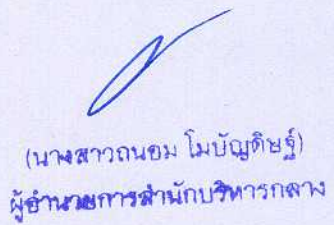 (นางสาวถนอม โมบัญดิษฐ์)
ผู้อำนวยการสำนักบริหารกลาง